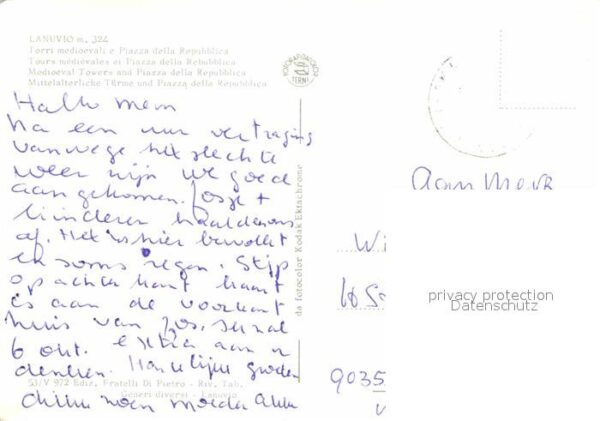 LANUVIO m. 324
Torri medioevali e Piazza della Repubblica
Tours médiévales et Piazza della Repubblica
Medieval Towers and Piazza della Repubblica
Mittelalterliche Türme und Piazza della Repubblica
Hallo Mem
Na een uur vertraging
vanwege het slechte
weer zijn we goed
aangekomen. Josje +
kinderen haalden ons
af. Het is hier bewolkt
en soms regen.
op achterkant kaart
is aan de voorkant
huis van Jos.
6 okt. extra aan u
denken. Hartelijke groeten
moeder
53/V 972 Ediz. Fratelli Di Pietro - Riv. Tab.
Generi diversi - Lanuvio
da fotocolor Kodak Ektachrome
TERNI
Aan
Wi
9035
privacy protection
Datenschutz